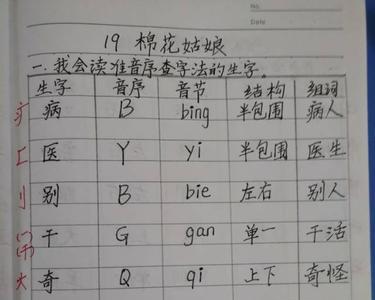 No.
Date
19 棉花姑娘
一.我会读准音序查字法的生字。
生字 音序 音节 结构 组词
疒 病 B bing 半包围 病人
匚 医 Y yi 半包围 医生
刂 别 B bie 左右 别人
干 G gan 单一 干活
大 奇 Q qi 上下 奇怪